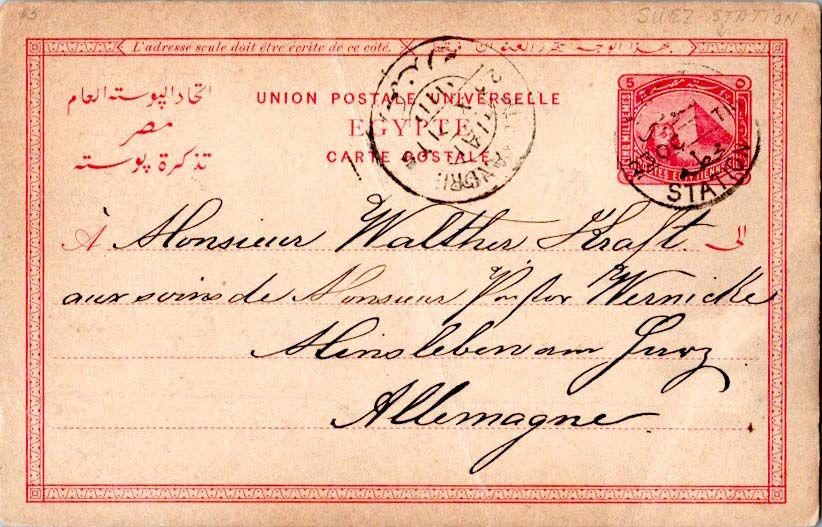 SUEZ-STATION
L'adresse seule doit être écrite de ce côté.
اتحاد البوسته العام
مصر
تذكرة بوسته
UNION POSTALE UNIVERSELLE
EGYPTE
CARTE POSTALE
5
STATION
À Monsieur Walther Kraft. الى
aux soins de Monsieur Wernicke
Minsleben am
Allemagne